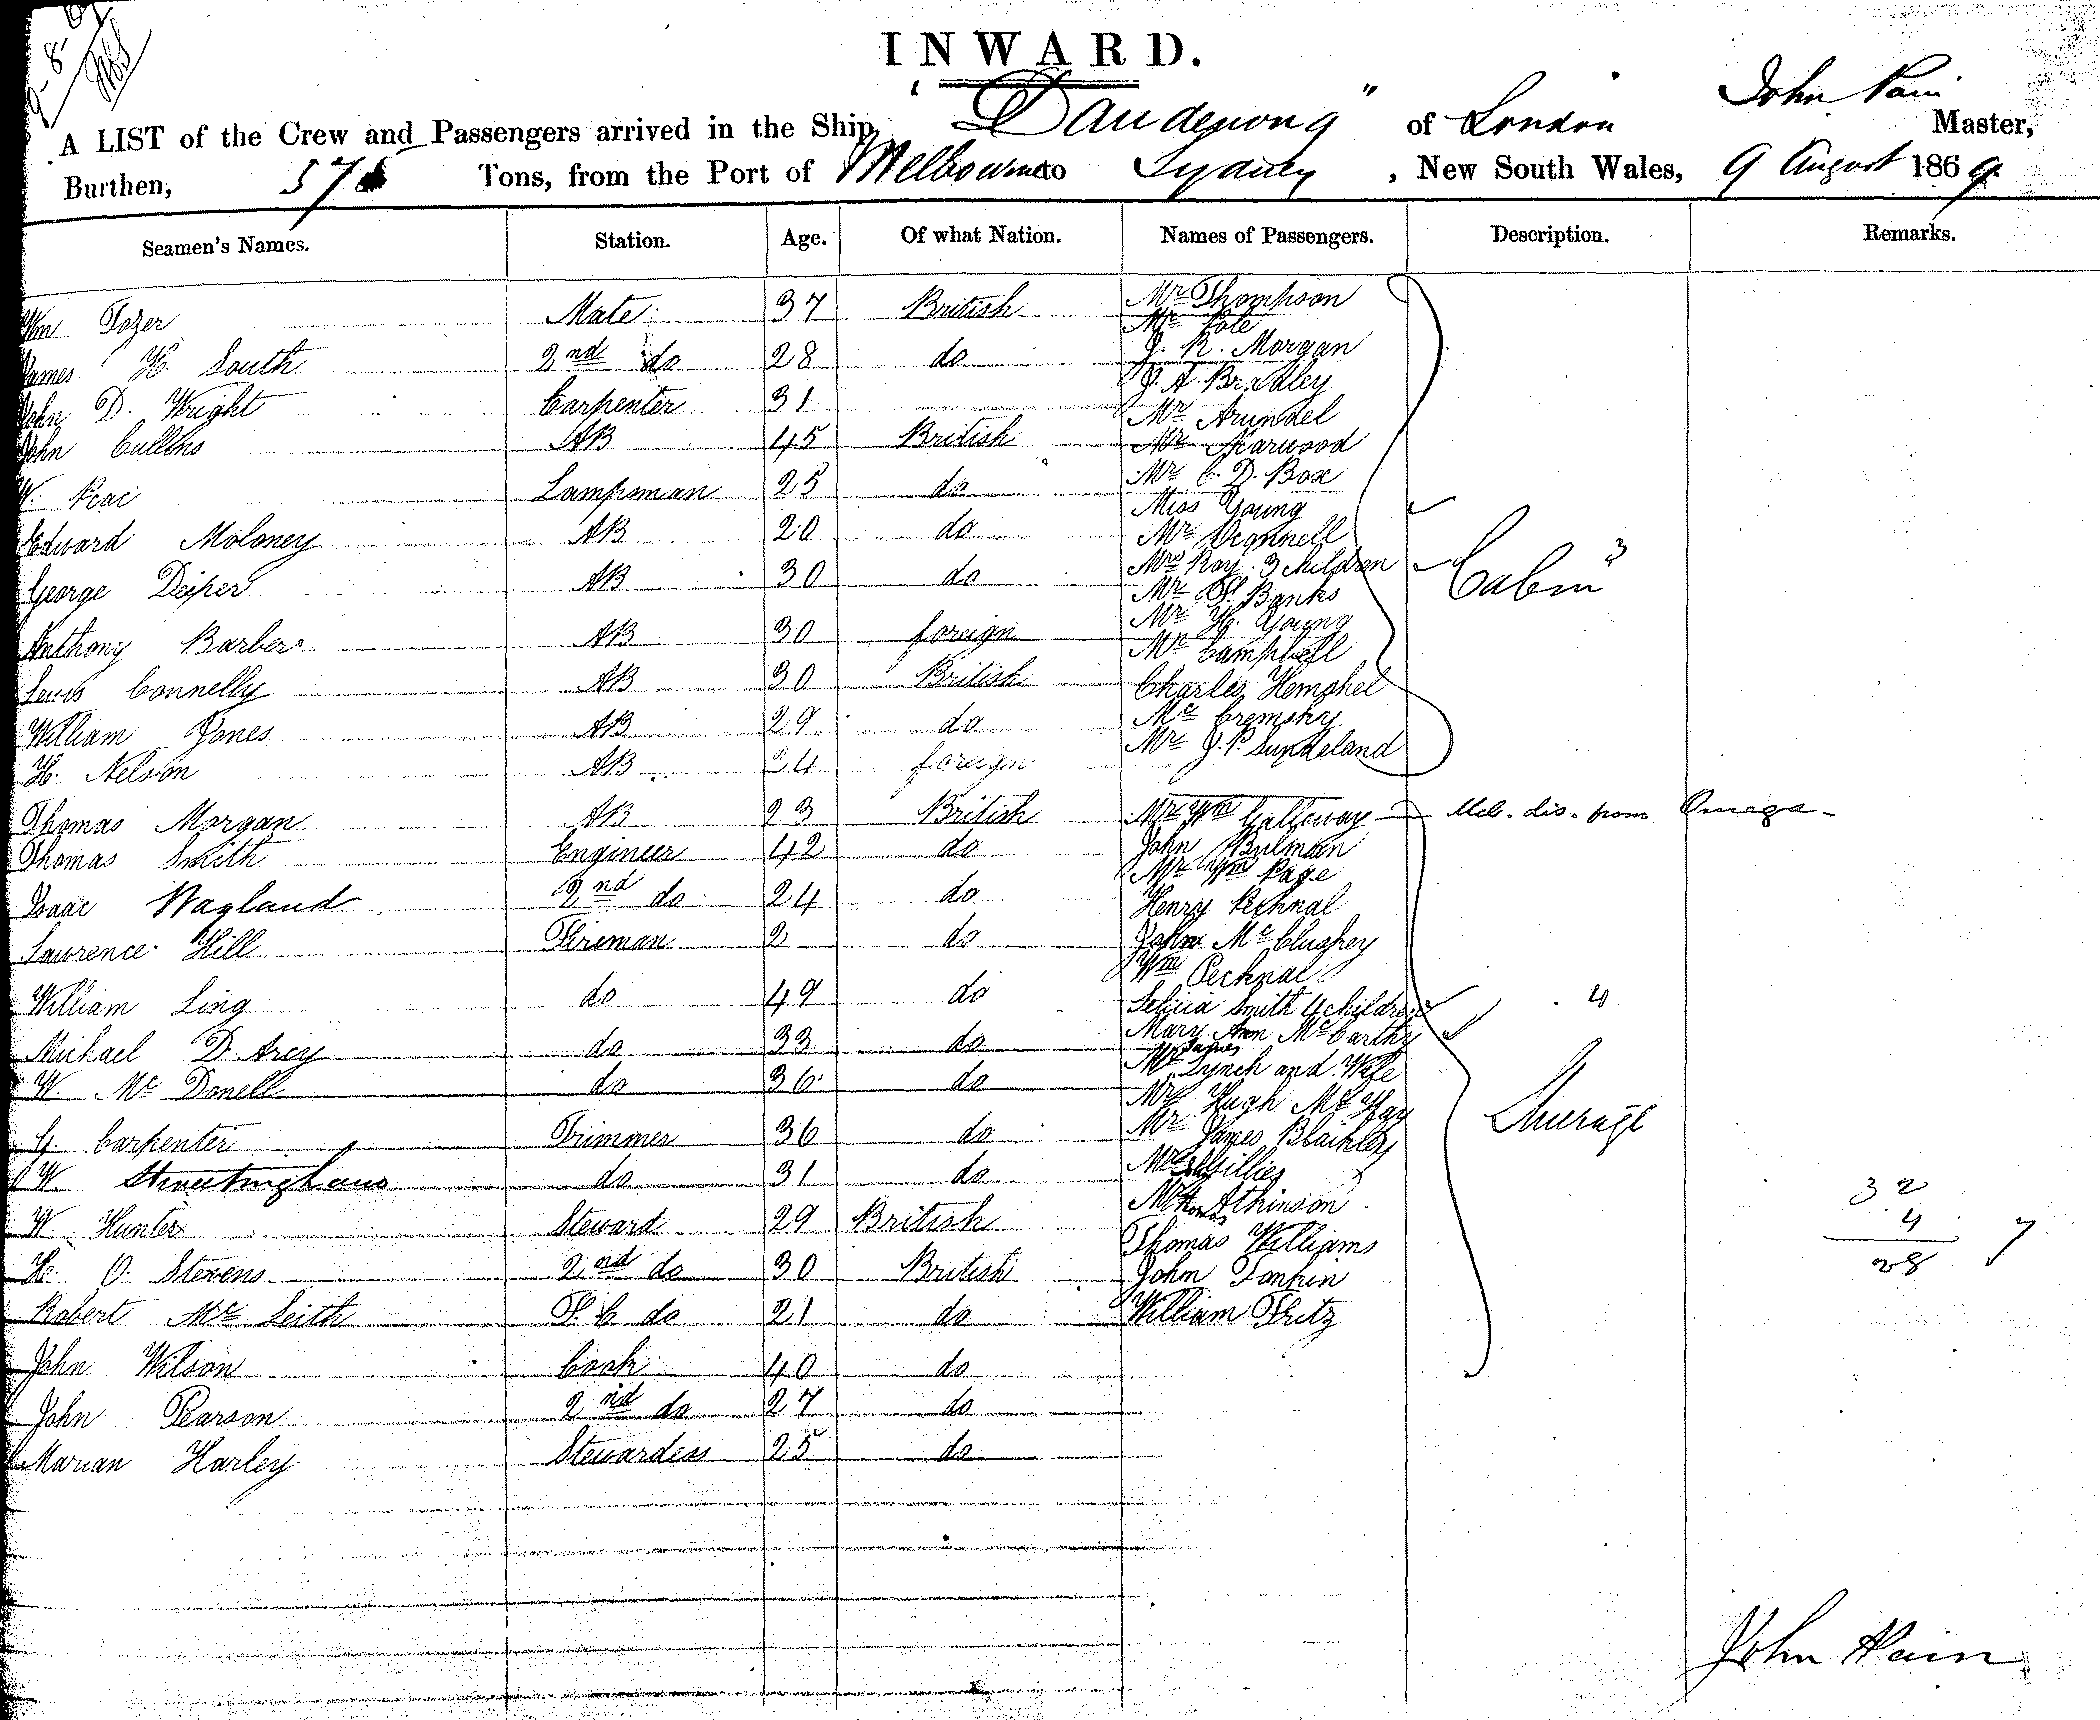 INWARD.
A LIST of the Crew and Passengers arrived in the Ship "Dandenong" of London John Pain Master,
Burthen, 575 Tons, from the Port of Melbourne to Sydney, New South Wales, 9 August 1869.
Seamen's Names. Station. Age. Of what Nation. Names of Passengers. Description. Remarks.
Wm Tozer Mate 37 British Mr Thompson
Mr Cole
James H. South 2nd do 28 do J. R. Morgan
J. A. Bradley
John D. Wright Carpenter 31 Mr Arundel
John Cullens AB 45 British Mr Marwood
Mr C. D. Box
W. Lampsman 25 do Miss Young
Edward Moloney AB 20 do Mr
George AB 30 do Mrs Ray. 3 children 3
Cabin
Mr Banks
Anthony Barber AB 30 foreign Mr H. Young
Mr Campbell
Connelly AB 30 British Charles Hemphel
William Jones AB 29 do Mr
H. Nelson AB 24 foreign Mr J. P. Sunkeland
Thomas Morgan AB 23 British Mr Wm Galloway Meb. dis. from Omega
Thomas Smith Engineer 42 do John Bulman
Mr Wm Page
Isaac Wagland 2nd do 24 do Henry Pechnal
Lawrence Hill Fireman 2 do John McCluskey
Wm Pechnal
William Ling do 49 do Smith 4 children 4
Mary Ann McCarthy
Michael D. Arcy do 33 do Mr James Lynch and Wife
W. McDonell do 36 do Mr Hugh McKay
G. Carpenter Trimmer 36 do Mr James Blaikley
Steerage
W. do 31 do Gillies
32
W Hunter Steward 29 British Atkinson
4 7
Thomas Williams
28
H. O. Stevens 2nd do 30 British John Tonkin
Robert McLeith F. C do 21 do William Fritz
John Wilson Cook 40 do
John Pearson 2nd do 27 do
Marian Harley Stewardess 25 do
John Pain